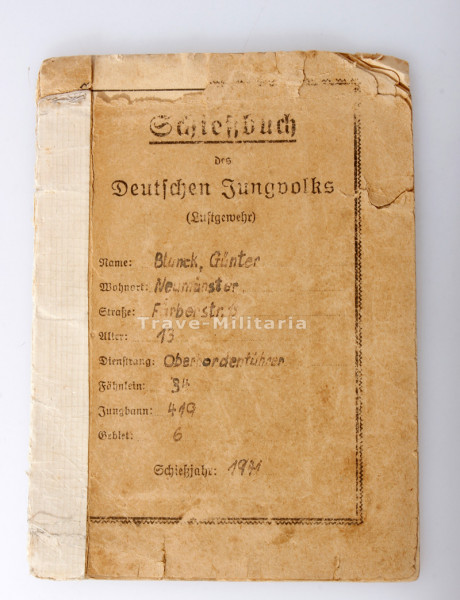 Schießbuch
des
Deutschen Jungvolks
(Luftgewehr)
Name: Blanck, Günter
Wohnort: Neumünster.
Straße: Färberstr.
Trave-Militaria
Alter: 13
Dienstrang: Oberhordenführer
Fähnlein: 34
Jungbann: 419
Gebiet: 6
Schießjahr: 1941